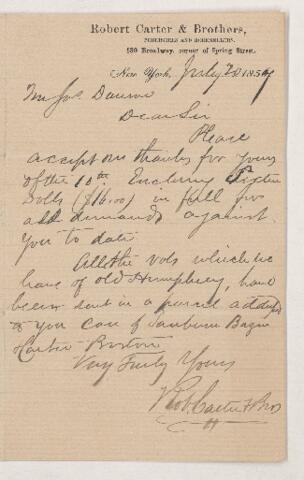 Robert Carter & Brothers,
PUBLISHERS AND BOOKSELLERS,
530 Broadway, corner of Spring Street.
New York, July 185
Mr Jos.
Dear Sir
Please
accept our thanks for yours
of the 10th Enclosing Sixteen
Dolls ($16.00) in full for
all demands against
you to date
All the vols which we
have of Old Humphrey, have
been sent in a parcel addressed
to you Care of Sanborn
Carter Boston
Very Truly Yours
Robt. Carter & Bros